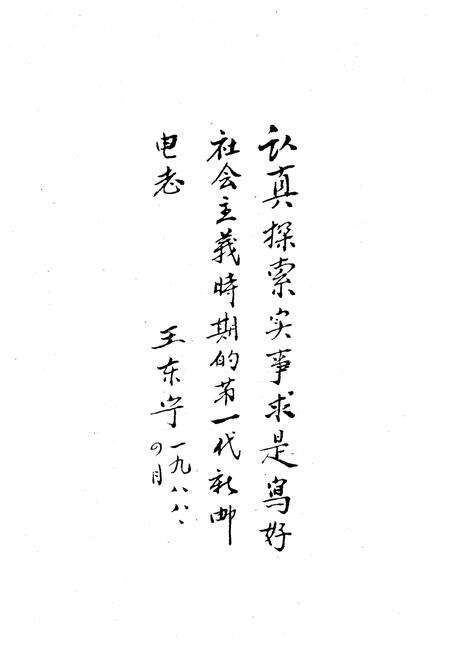 认真探索实事求是寫好
社会主義時期的第一代新邮
电志
王东宁一九八八、
四月